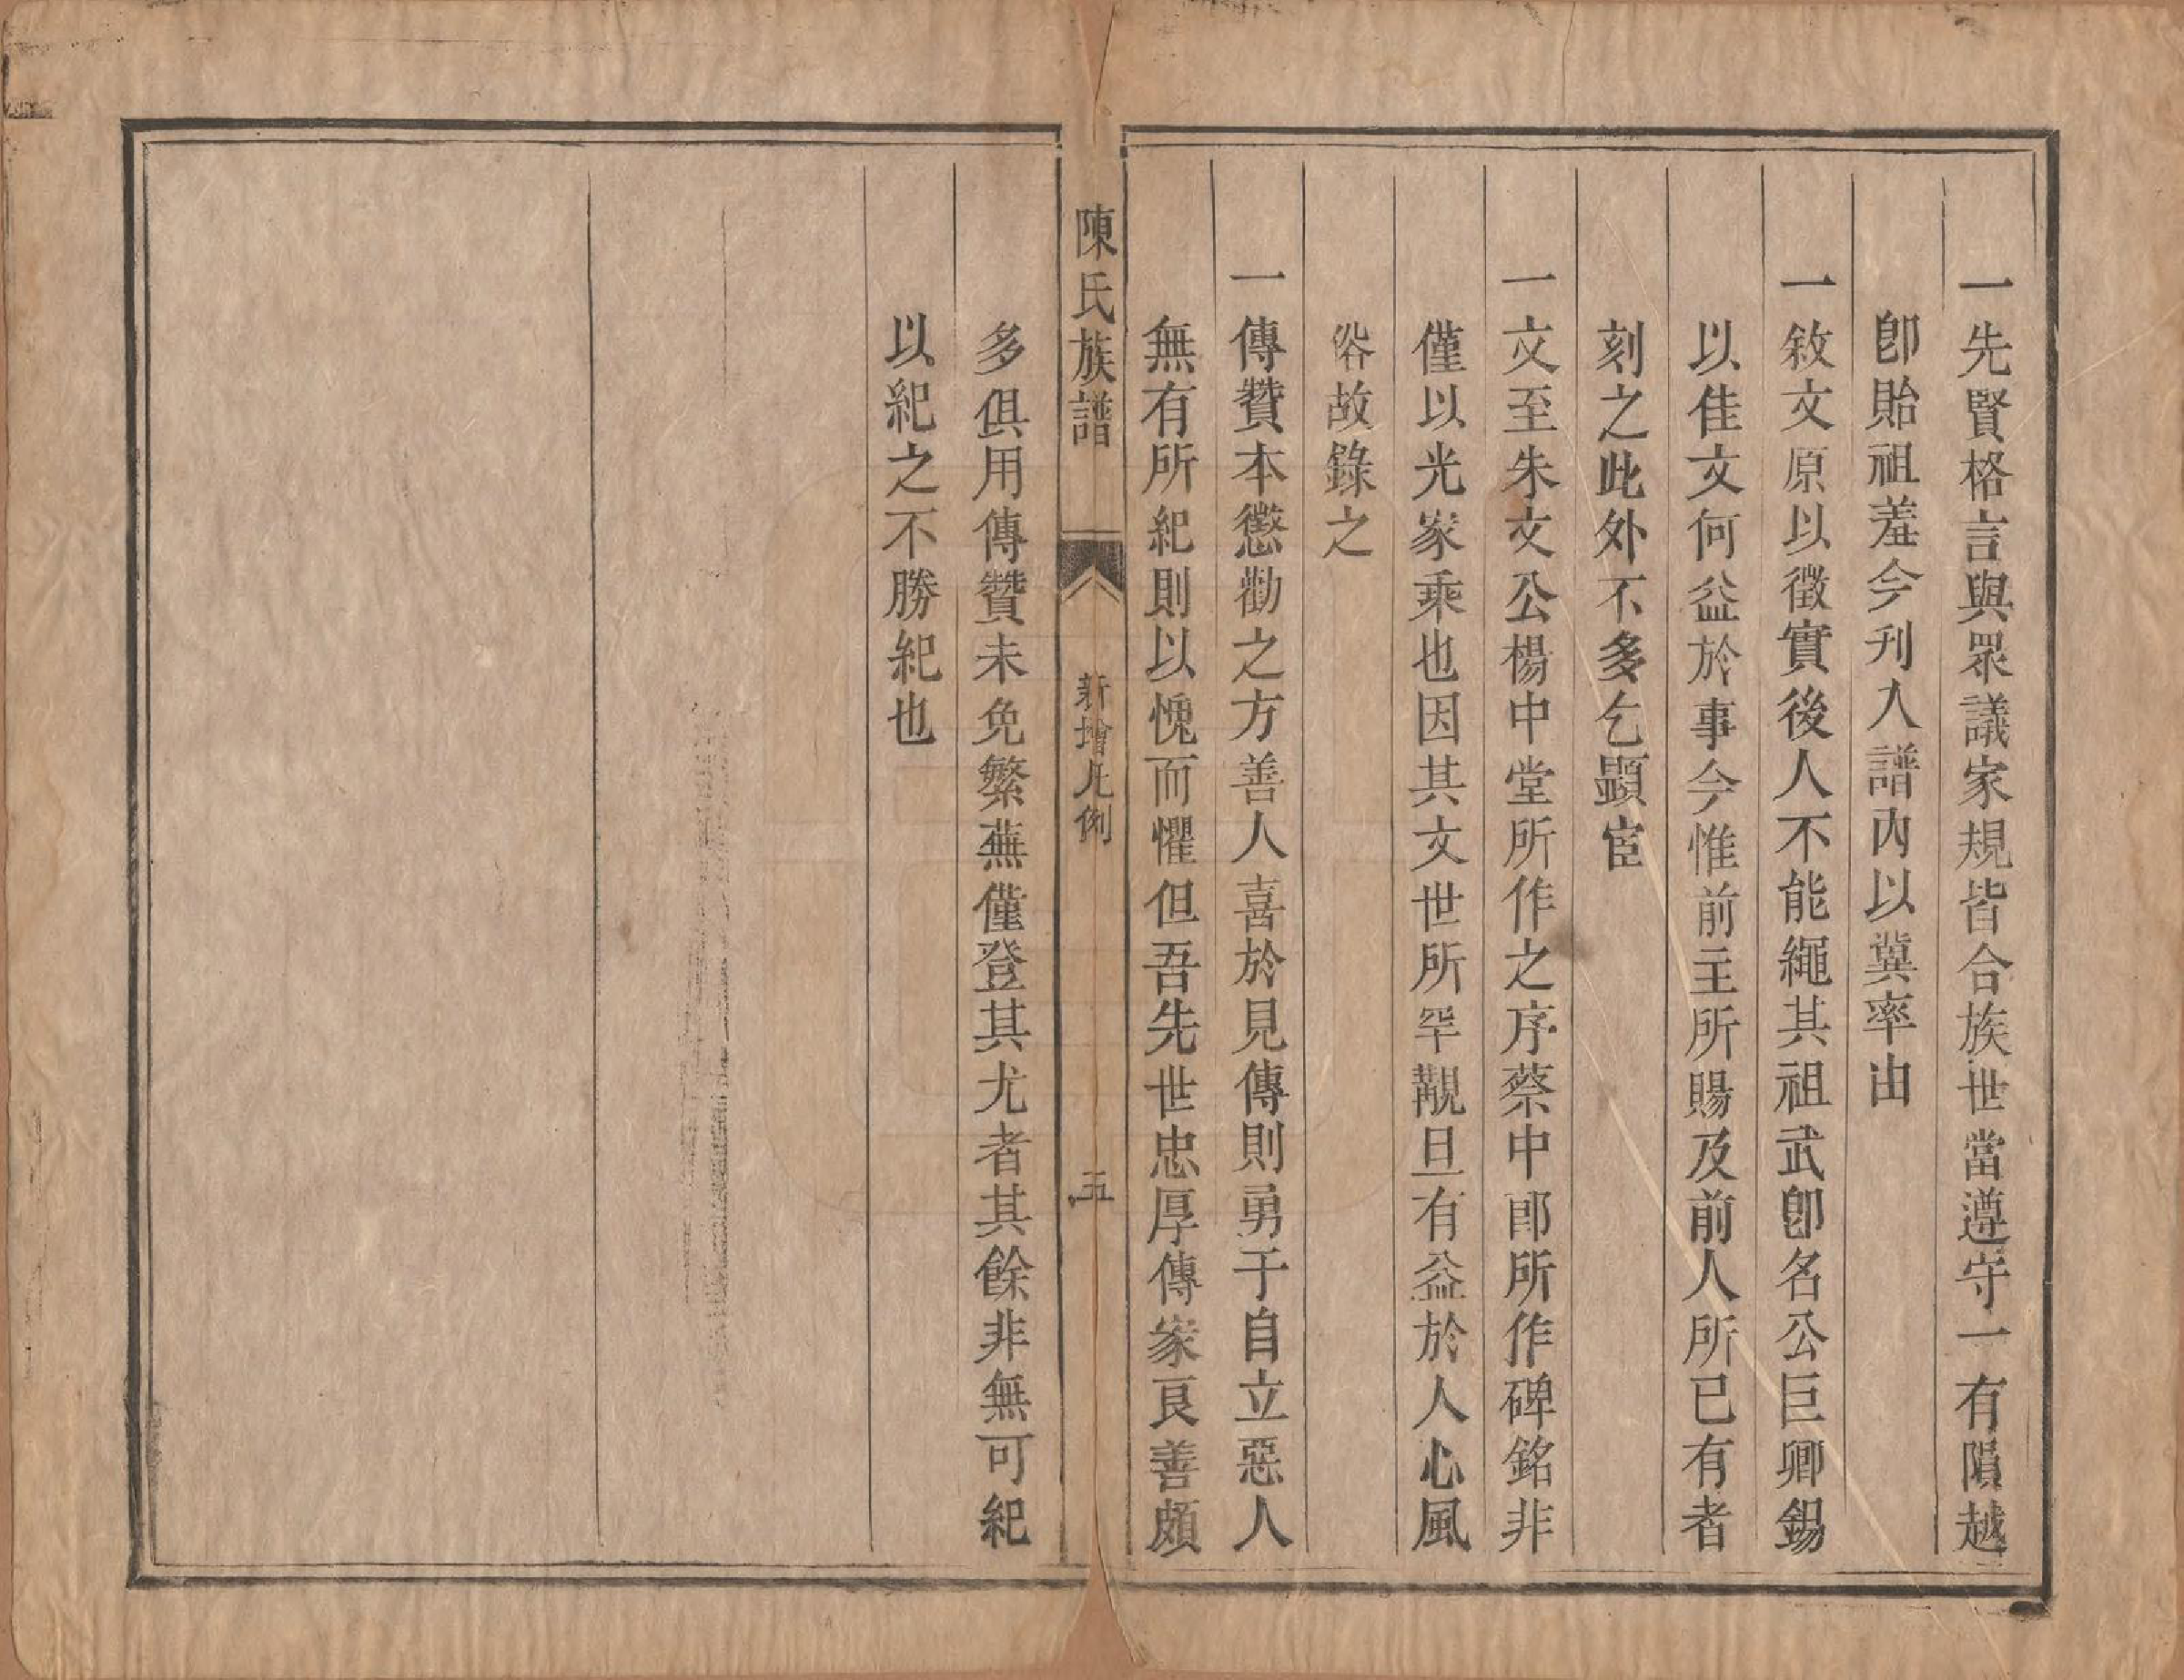 一先賢格言與眾議家規皆合族世當遵守一有隕越
卽貽祖羞今刋入譜內以冀率由
一敘文原以徵實後人不能繩其祖武卽名公巨卿錫
以佳文何益於事今惟前主所賜及前人所已有者
刻之此外不多乞顯宦
一文至朱文公楊中堂所作之序蔡中郎所作碑銘非
僅以光家乘也因其文世所罕覯且有益於人心風
俗故錄之
一傳贊本懲勸之方善人喜於見傳則勇于自立惡人
無有所紀則以愧而懼但吾先世忠厚傳家良善頗
陳氏族譜 新增凡例 五
多俱用傳贊未免繁蕪僅登其尤者其餘非無可紀
以紀之不勝紀也